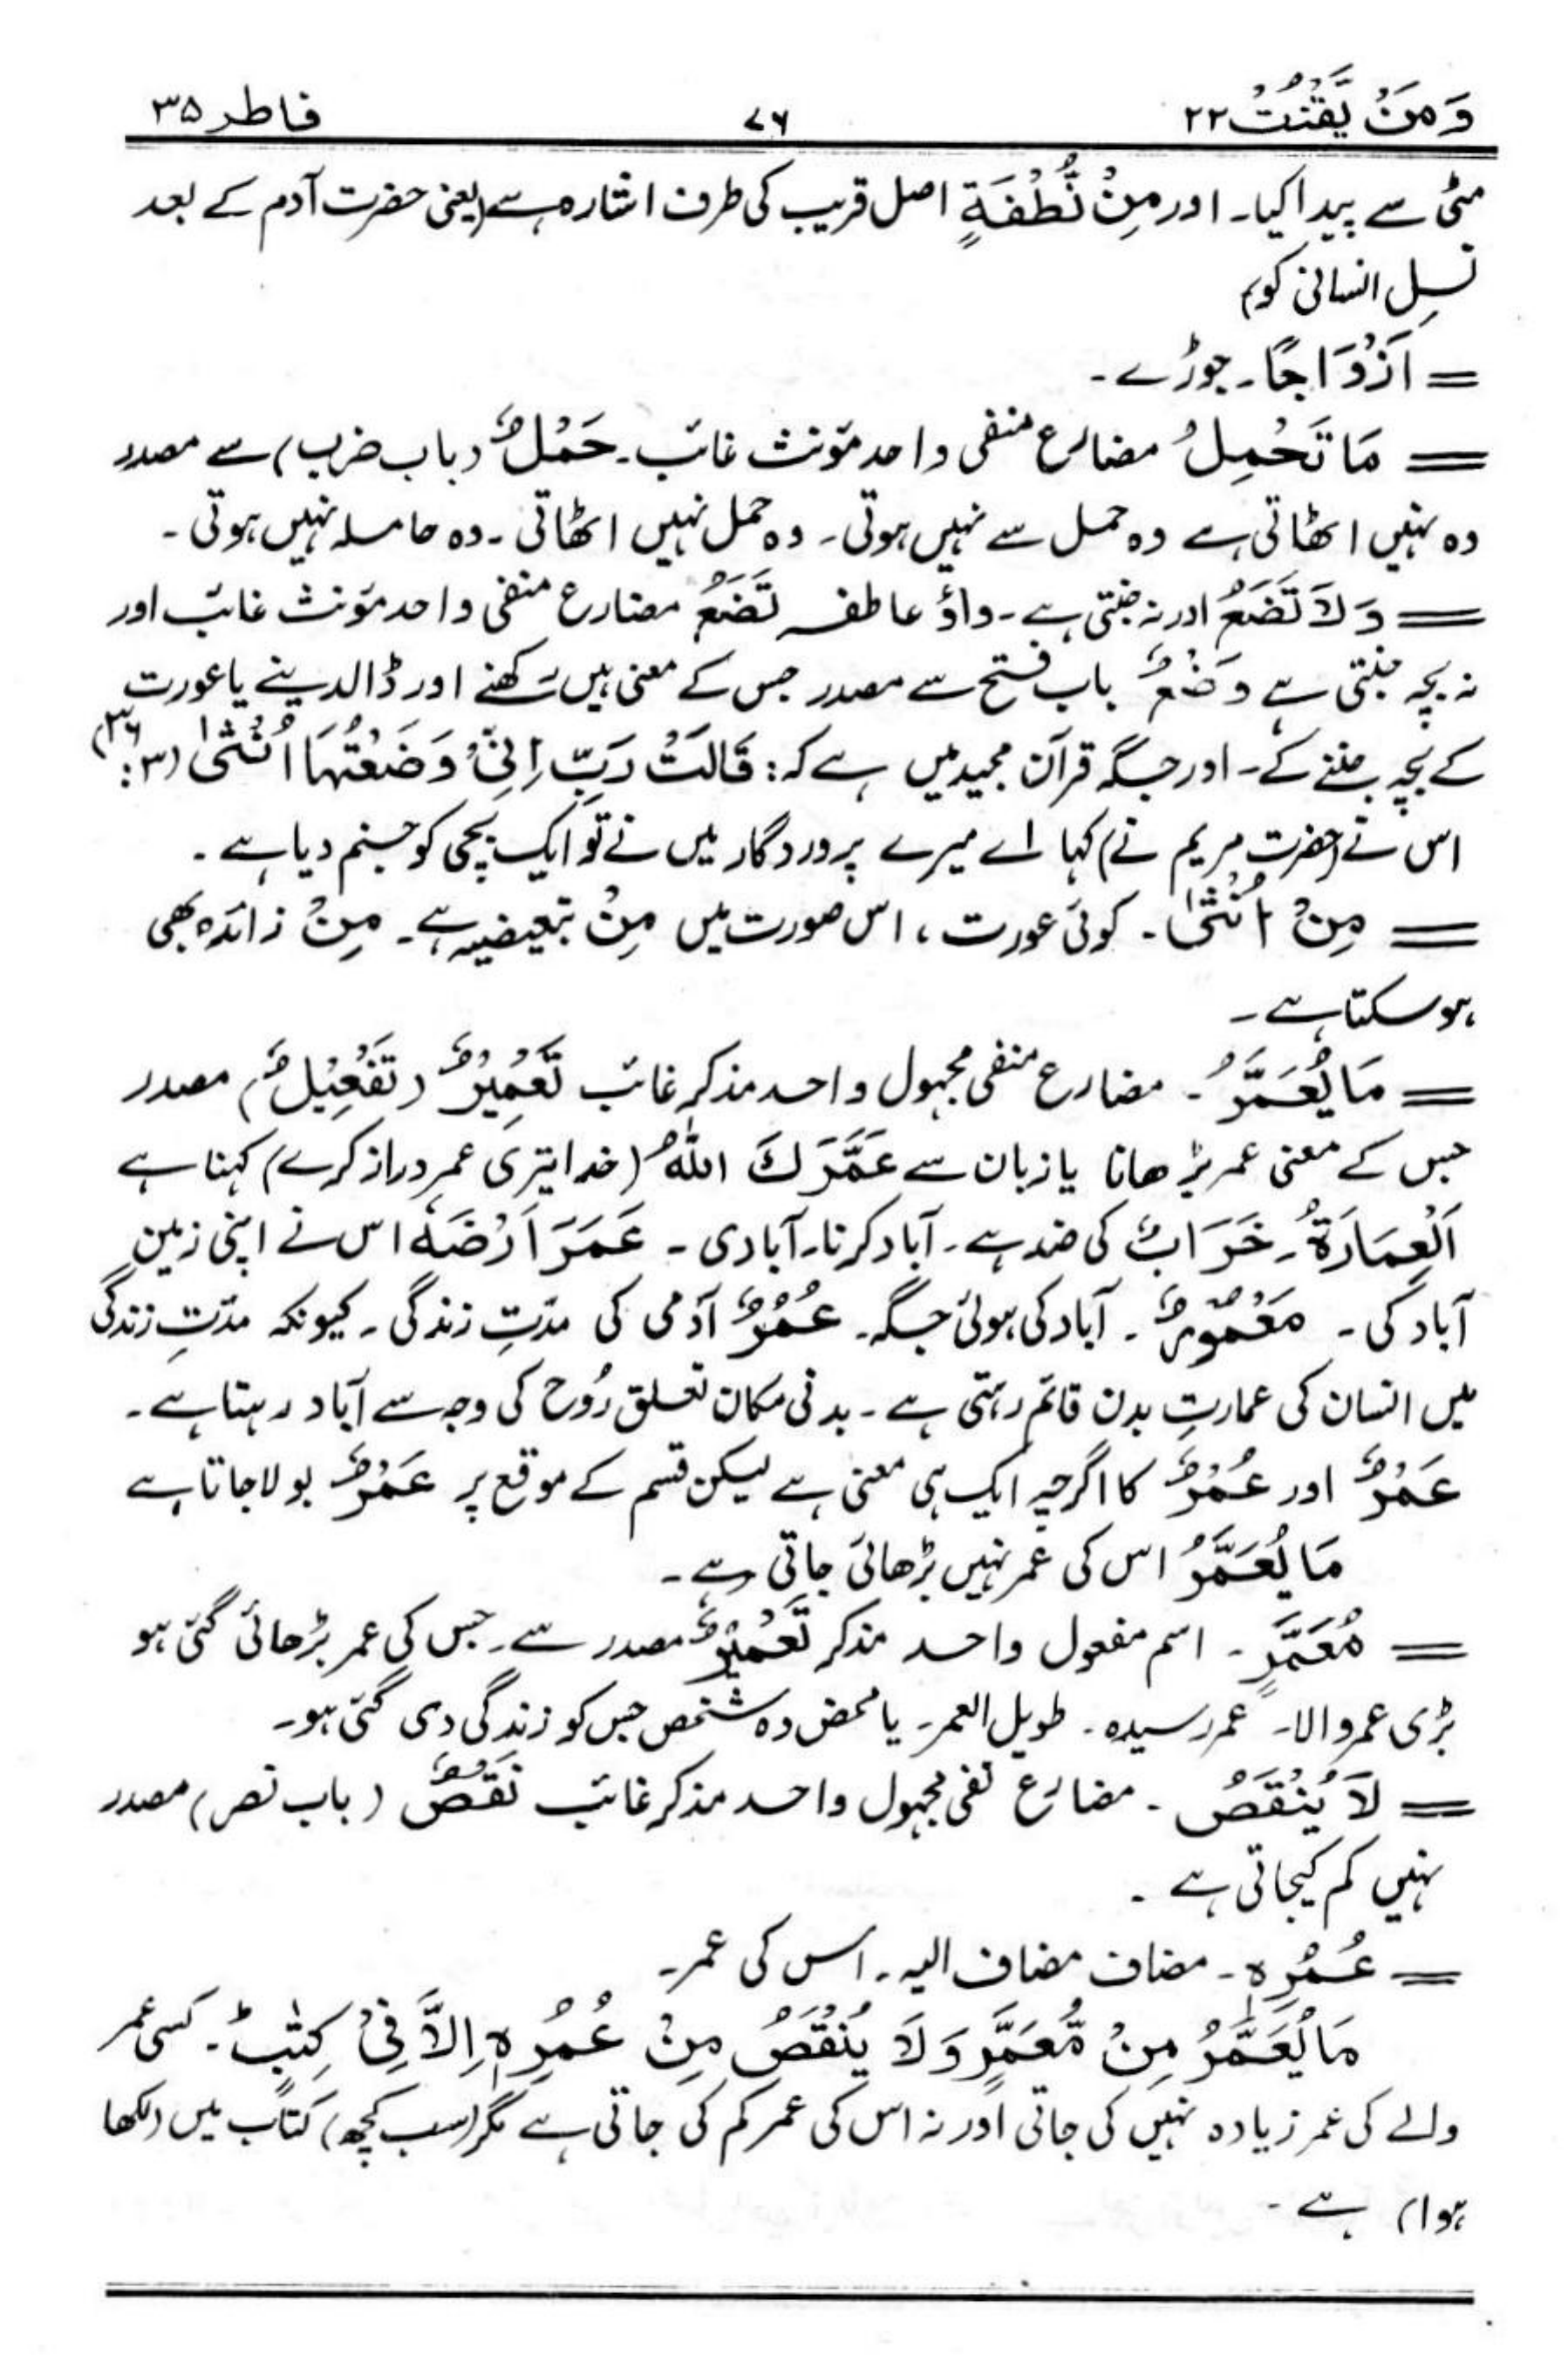 وَمَنْ يَّقْنُتْ ۲۲ ۷۶ فاطر ۳۵
مٹی سے پیدا کیا۔ اور مِنْ نُّطْفَةٍ اصل قریب کی طرف اشارہ ہے (یعنی حضرت آدم کے بعد
نسلِ انسانی کو)
= اَزْوَاجًا۔ جوڑے۔
= مَا تَحْمِلُ مضارع منفی واحد مؤنث غائب۔ حَمْلٌ (باب ضرب) سے مصدر
وہ نہیں اٹھاتی ہے وہ حمل سے نہیں ہوتی۔ وہ حمل نہیں اٹھاتی۔ وہ حاملہ نہیں ہوتی۔
= وَلَا تَضَعُ اور نہ جنتی ہے۔ واؤ عاطفہ تَضَعُ مضارع منفی واحد مؤنث غائب اور
نہ بچہ جنتی ہے وَضْعٌ باب فتح سے مصدر جس کے معنی ہیں رکھنے اور ڈالدینے یا عورت
کے بچہ جننے کے۔ اور جگہ قرآن مجید میں ہے کہ: قَالَتْ رَبِّ اِنِّیْ وَضَعْتُهَا اُنْثٰی (۳: ۳۶)
اس نے (حضرت مریم نے) کہا اے میرے پروردگار میں نے تو ایک بچی کو جنم دیا ہے۔
= مِنْ اُنْثٰی۔ کوئی عورت، اس صورت میں مِنْ تبعیضیہ ہے۔ مِنْ زائدہ بھی
ہو سکتا ہے۔
= مَا یُعَمَّرُ۔ مضارع منفی مجہول واحد مذکر غائب تَعْمِیْرٌ (تَفْعِیْلٌ) مصدر
جس کے معنی عمر بڑھانا یا زبان سے عَمَّرَكَ اللّٰهُ (خدا تیری عمر دراز کرے) کہنا ہے
اَلْعِمَارَةُ۔ خَرَابٌ کی ضد ہے۔ آباد کرنا۔ آبادی۔ عَمَرَ اَرْضَهٗ اس نے اپنی زمین
آباد کی۔ مَعْمُوْرٌ۔ آباد کی ہوئی جگہ۔ عُمُرٌ آدمی کی مدّتِ زندگی۔ کیونکہ مدّتِ زندگی
میں انسان کی عمارتِ بدن قائم رہتی ہے۔ بدنی مکان تعلق رُوح کی وجہ سے آباد رہتا ہے۔
عَمْرٌ اور عُمْرٌ کا اگرچہ ایک ہی معنی ہے لیکن قسم کے موقع پر عَمْرٌ بولا جاتا ہے
مَا یُعَمَّرُ اس کی عمر نہیں بڑھائی جاتی ہے۔
= مُعَمَّرٍ۔ اسم مفعول واحد مذکر تَعْمِیْرٌ مصدر سے۔ جس کی عمر بڑھائی گئی ہو
بڑی عمر والا۔ عمر رسیدہ۔ طویل العمر۔ یا محض وہ شخص جس کو زندگی دی گئی ہو۔
= لَا یُنْقَصُ۔ مضارع نفی مجہول واحد مذکر غائب نَقْصٌ (باب نصر) مصدر
نہیں کم کیجاتی ہے۔
= عُمُرِهٖ۔ مضاف مضاف الیہ۔ اس کی عمر۔
مَا یُعَمَّرُ مِنْ مُّعَمَّرٍ وَّلَا یُنْقَصُ مِنْ عُمُرِهٖ اِلَّا فِیْ كِتٰبٍ ؕ۔ کسی عمر
والے کی عمر زیادہ نہیں کی جاتی اور نہ اس کی عمر کم کی جاتی ہے مگر (سب کچھ) کتاب میں (لکھا
ہوا) ہے۔